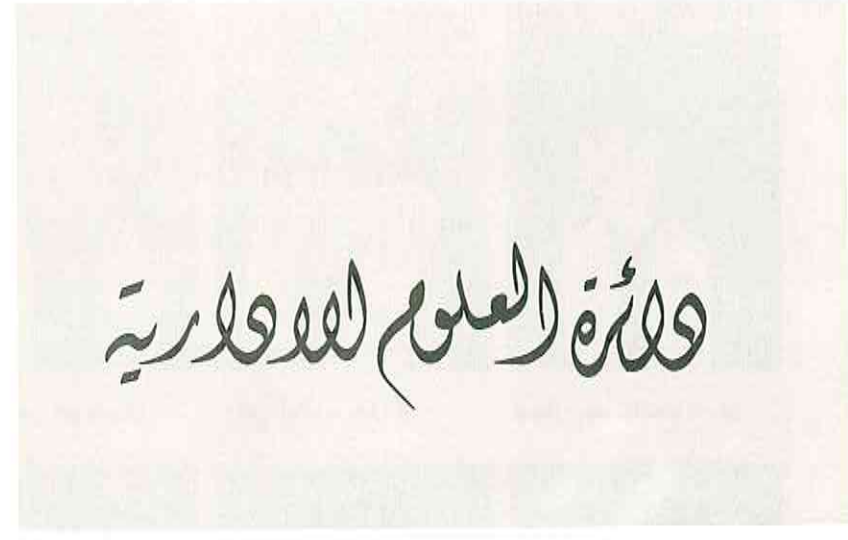 دائرة العلوم الادارية